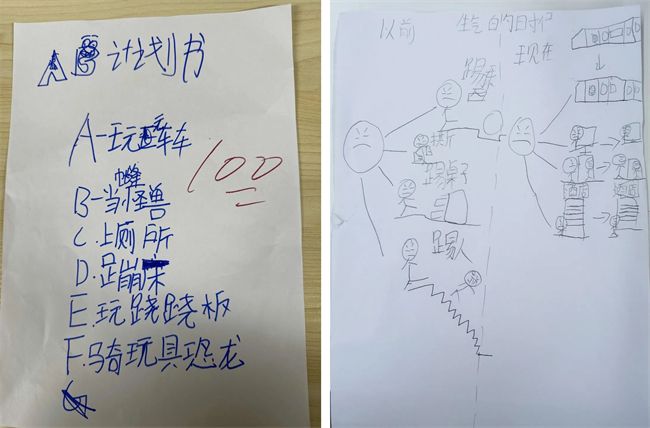 AB计划书
A-玩车车
B-当怪兽
C.上厕所
D.蹦床
E.玩跷跷板
F.骑玩具恐龙
100
以前 生气的时候
现在
踢
踢桌子
踢人